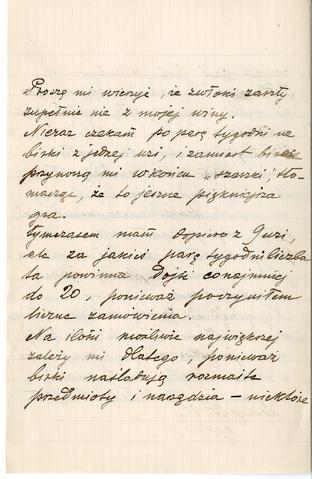 Proszę mi wierzyć, że zwłoki zaszły
zupełnie nie z mojej winy.
Nieraz czekam po parę tygodni na
birki z jednej wsi, i zamiast birek
przynoszą mi wkońcu „szarki", tło-
macząc, że to jeszcze piękniejsza
gra.
Tymczasem mam dopiero z 9 wsi,
ale za jakieś parę tygodni liczba
ta powinna dojść conajmniej
do 20, ponieważ poczyniłem
liczne zamówienia.
Na ilości możliwie największej
zależy mi dlatego, ponieważ
birki naśladują rozmaite
przedmioty i narzędzia – niektóre